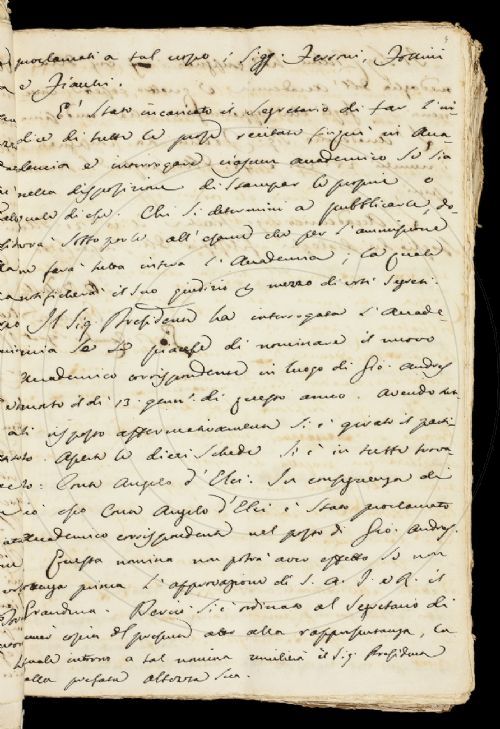 proclamati a tal uopo i Sigg. Ferroni, Fossini
e Fiacchi.
E' stato incaricato il Segretario di far l'in-
dice di tutte le prose recitate finquì in Acca-
demia e interrogare ciascun accademico se sia
nella disposizione di stampar le proprie o
alcuna di esse. Chi si determini a pubblicarle, do-
vrà sottoporle all'esame che per l'ammissione
farà tutta intera l'Accademia, la quale
manifesterà il suo giudizio per mezzo di voti segreti.
Il Sig. Presidente ha interrogata l'Accade-
mia se le piacesse di nominare il nuovo
Accademico corrispondente in luogo di Gio. Andres
mancato il dì 13. genn. di questo anno. Avendo tut-
ti risposto affermativamente si è girato il parti-
to. Aperte le dieci schede si è in tutte trova-
to: Conte Angelo d'Elci. In conseguenza di
ciò esso Conte Angelo d'Elci è stato proclamato
Accademico corrispondente nel posto di Gio. Andres.
Questa nomina non potrà aver effetto se non
prima l'approvazione di S. A. I. e R. il
Granduca. Perciò si è ordinato al Segretario di
unir copia del presente atto alla rappresentanza, la
quale intorno a tal nomina umilierà il Sig. Presidente
alla prefata Altezza sua.